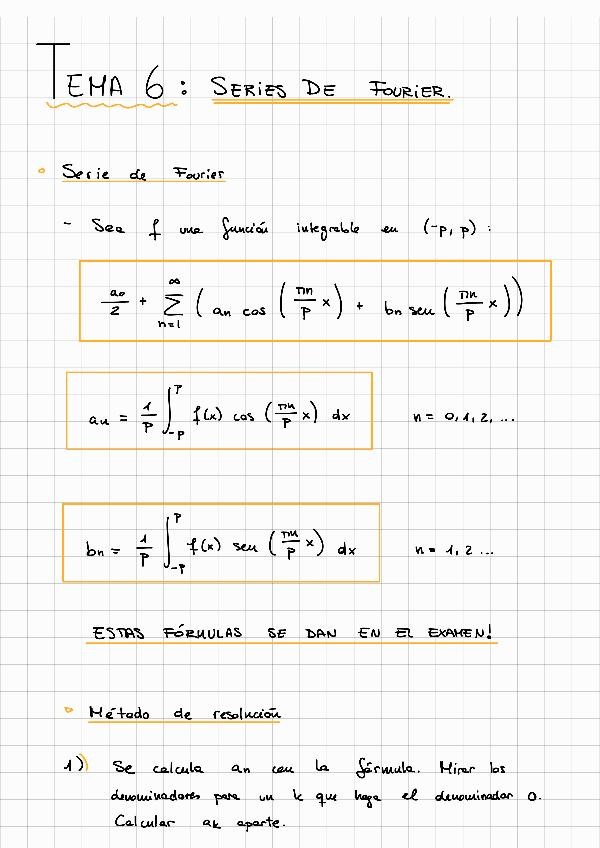 TEMA 6: SERIES DE FOURIER.
Serie de Fourier
- Sea f una función integrable en (-p, p) :
a0/2 + ∑_{n=1}^{∞} ( an cos ( πn/p x ) + bn sen ( πn/p x ) )
an = 1/p ∫_{-p}^{p} f(x) cos ( πn/p x ) dx n = 0, 1, 2, ...
bn = 1/p ∫_{-p}^{p} f(x) sen ( πn/p x ) dx n = 1, 2 ...
ESTAS FÓRMULAS SE DAN EN EL EXAMEN!
Método de resolución
1) Se calcula an con la fórmula. Mirar los
denominadores para un k que haga el denominador 0.
Calcular ak aparte.